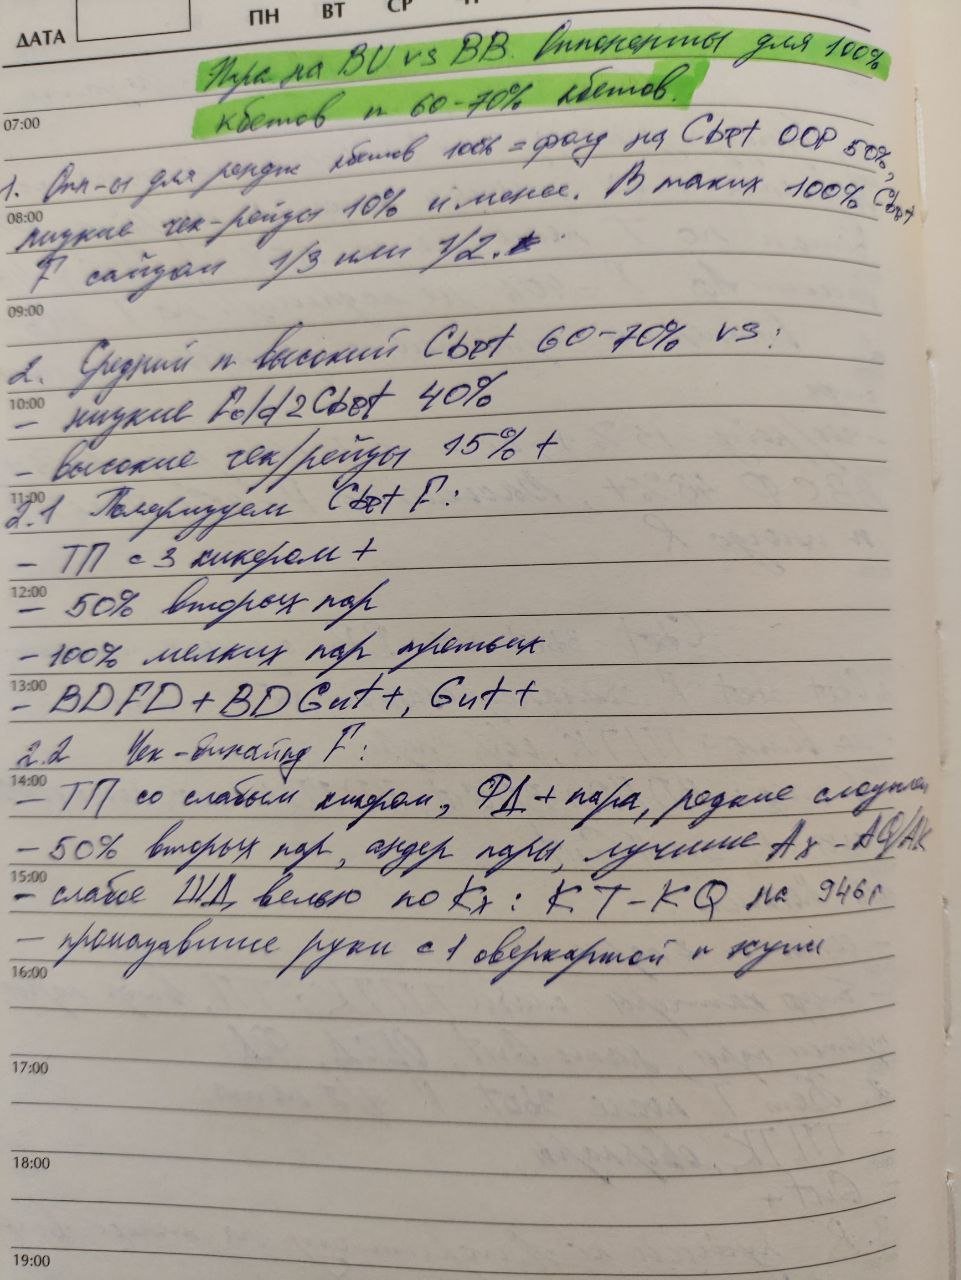 ДАТА ПН ВТ СР
Игра на BU vs BB. Оппоненты для 100%
кбетов и 60-70% кбетов.
07:00
1. Опп-ы для рендж кбетов 100% = фолд на Cbet OOP 50%,
08:00
низкие чек-рейзы 10% и менее. В таких 100% Cbet
F сайзом 1/3 или 1/2.
09:00
2. Средний и высокий Cbet 60-70% vs:
10:00
- низкие Fold2Cbet 40%
- высокие чек/рейзы 15% +
11:00
2.1 Поляризуем Cbet F:
- ТП с 3 кикером +
12:00
- 50% вторых пар
- 100% мелких пар третьих
13:00
- BDFD + BD Gut +, Gut +
2.2 Чек-бихайнд F:
14:00
- ТП со слабым кикером, ФД + пара, редкие слоуплеи
- 50% вторых пар, андер пары, лучшие Ax - AQ/AK
15:00
- слабое ШД велью по Kx: KT-KQ на 946r
- промазавшие руки с 1 оверкартой и хуже
16:00
17:00
18:00
19:00